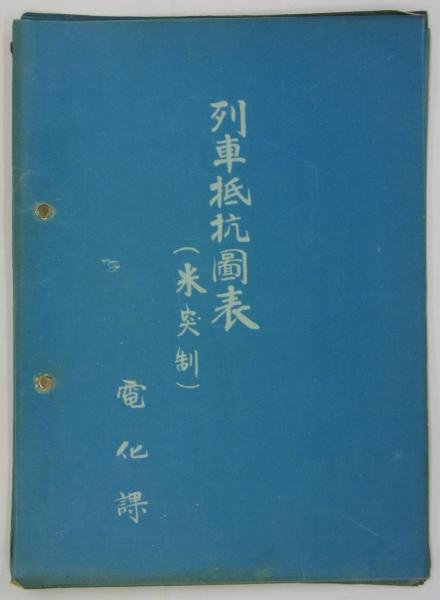 列車抵抗圖表
(米突制)
電化課